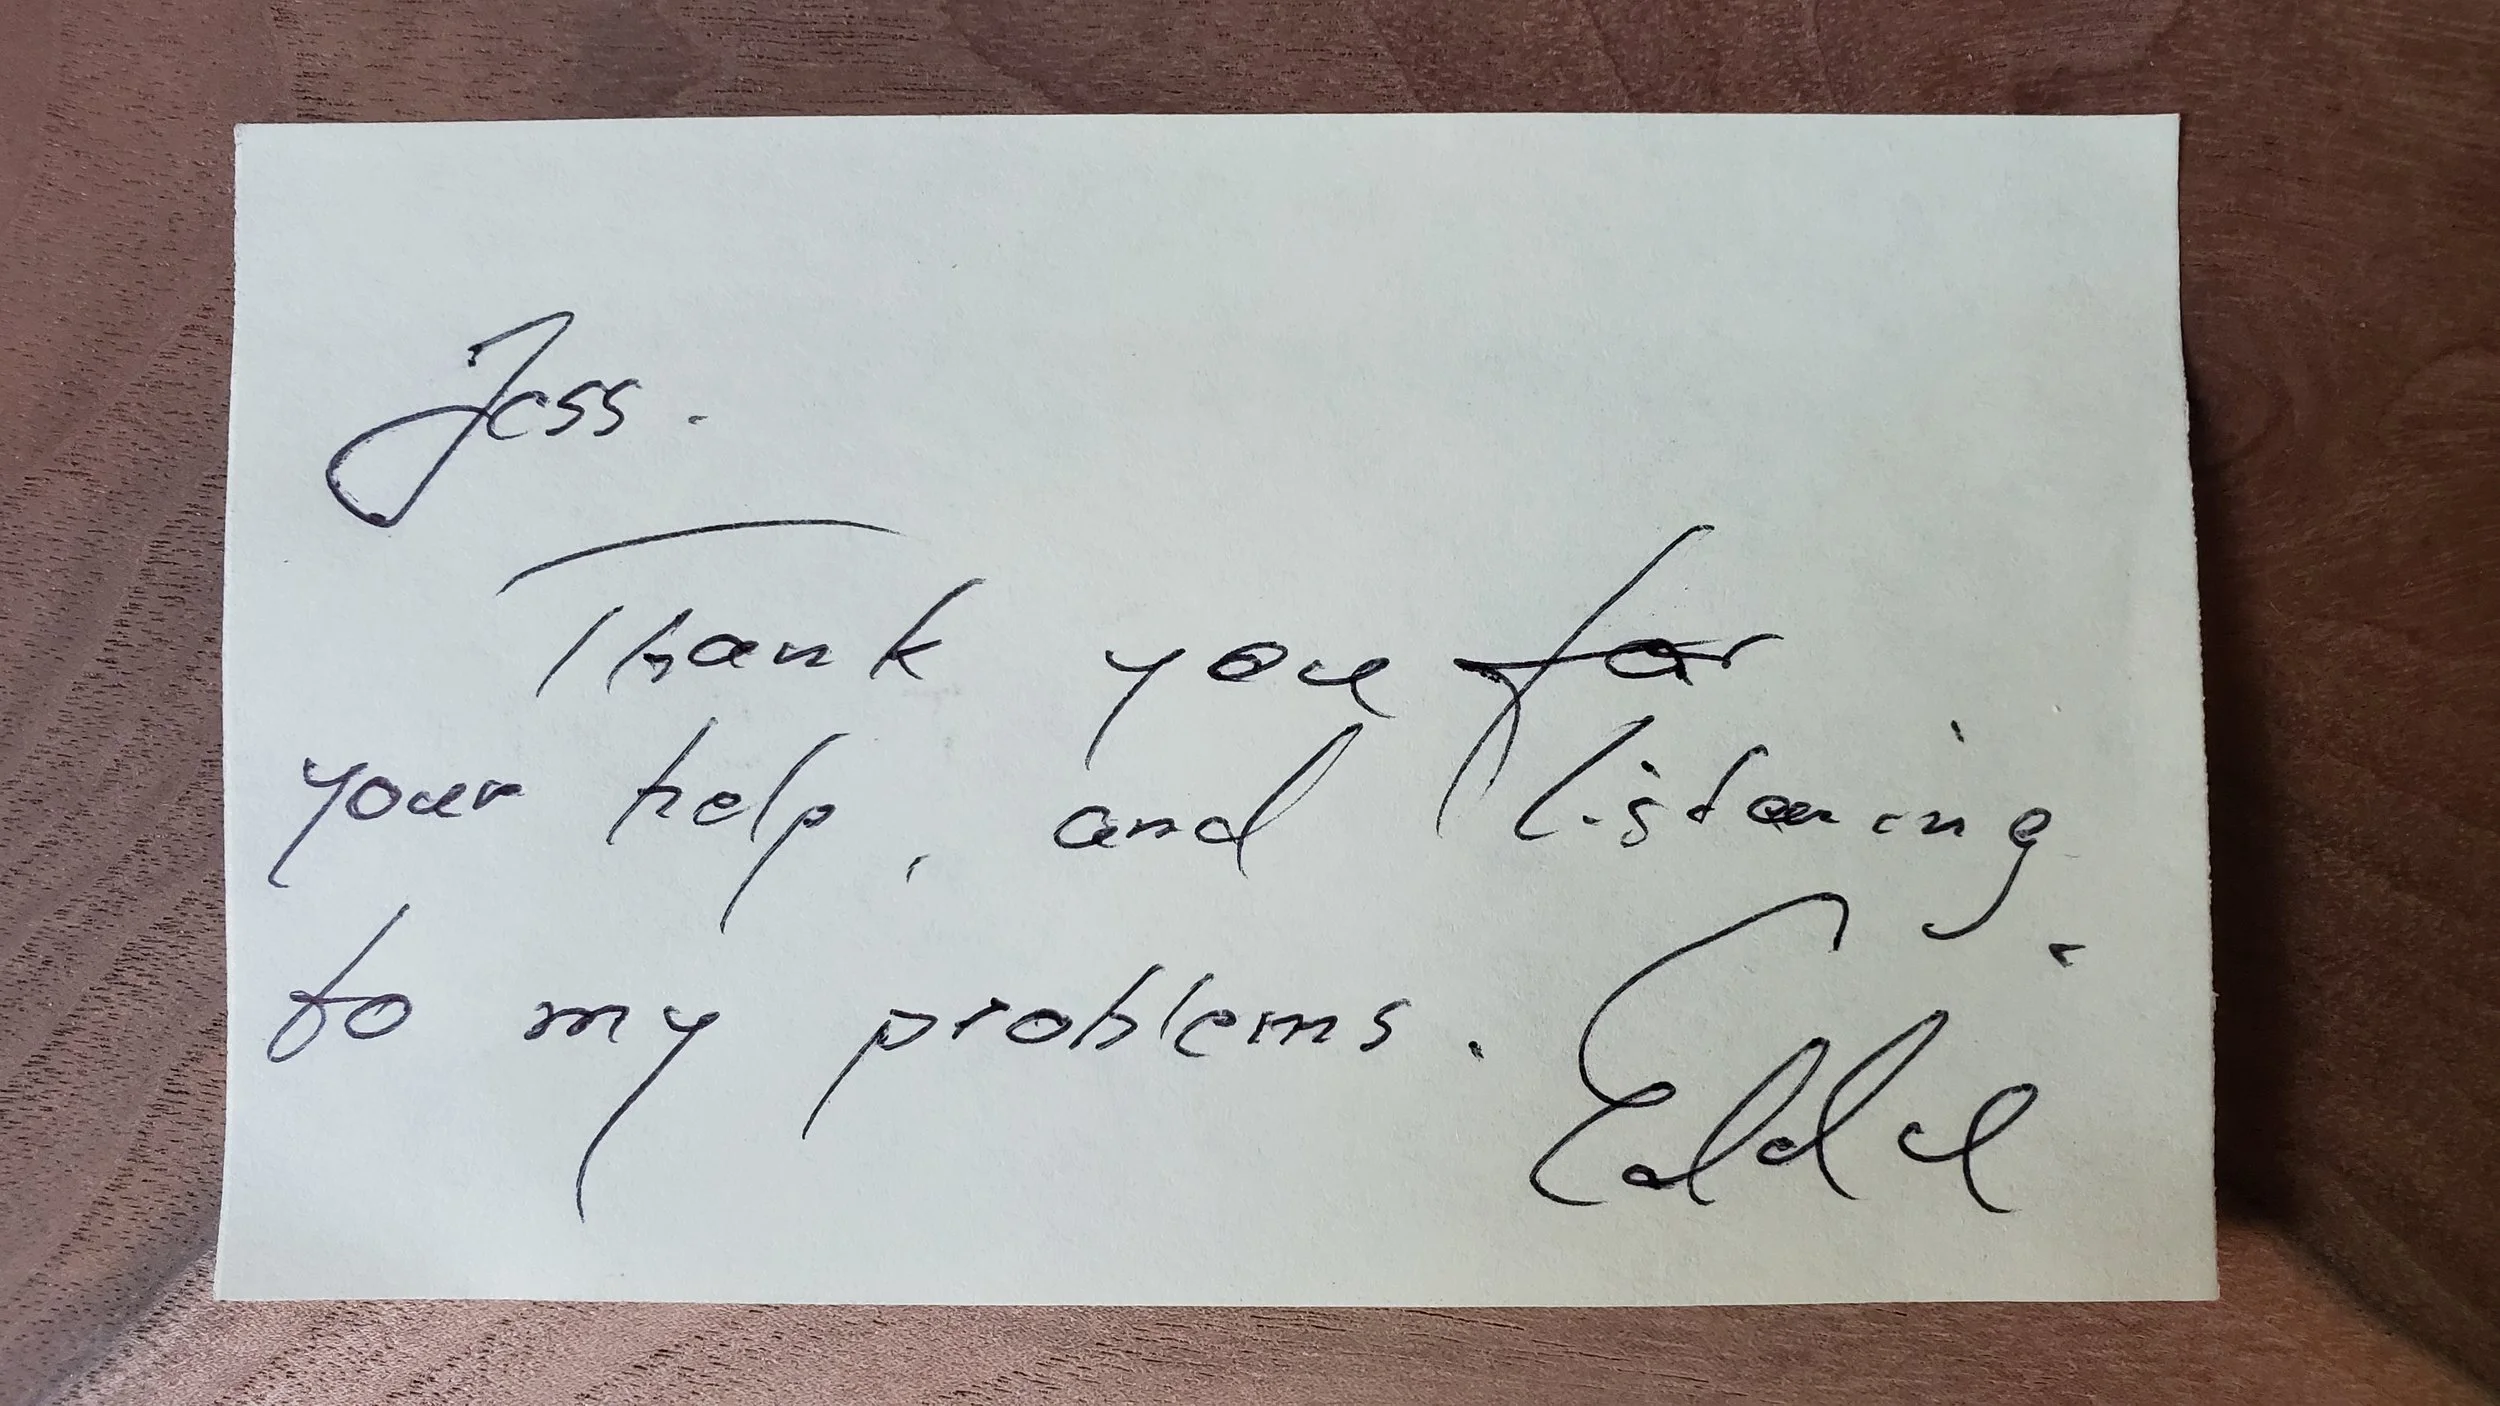 Jess.
Thank you for
your help, and listening
to my problems.
Eddie